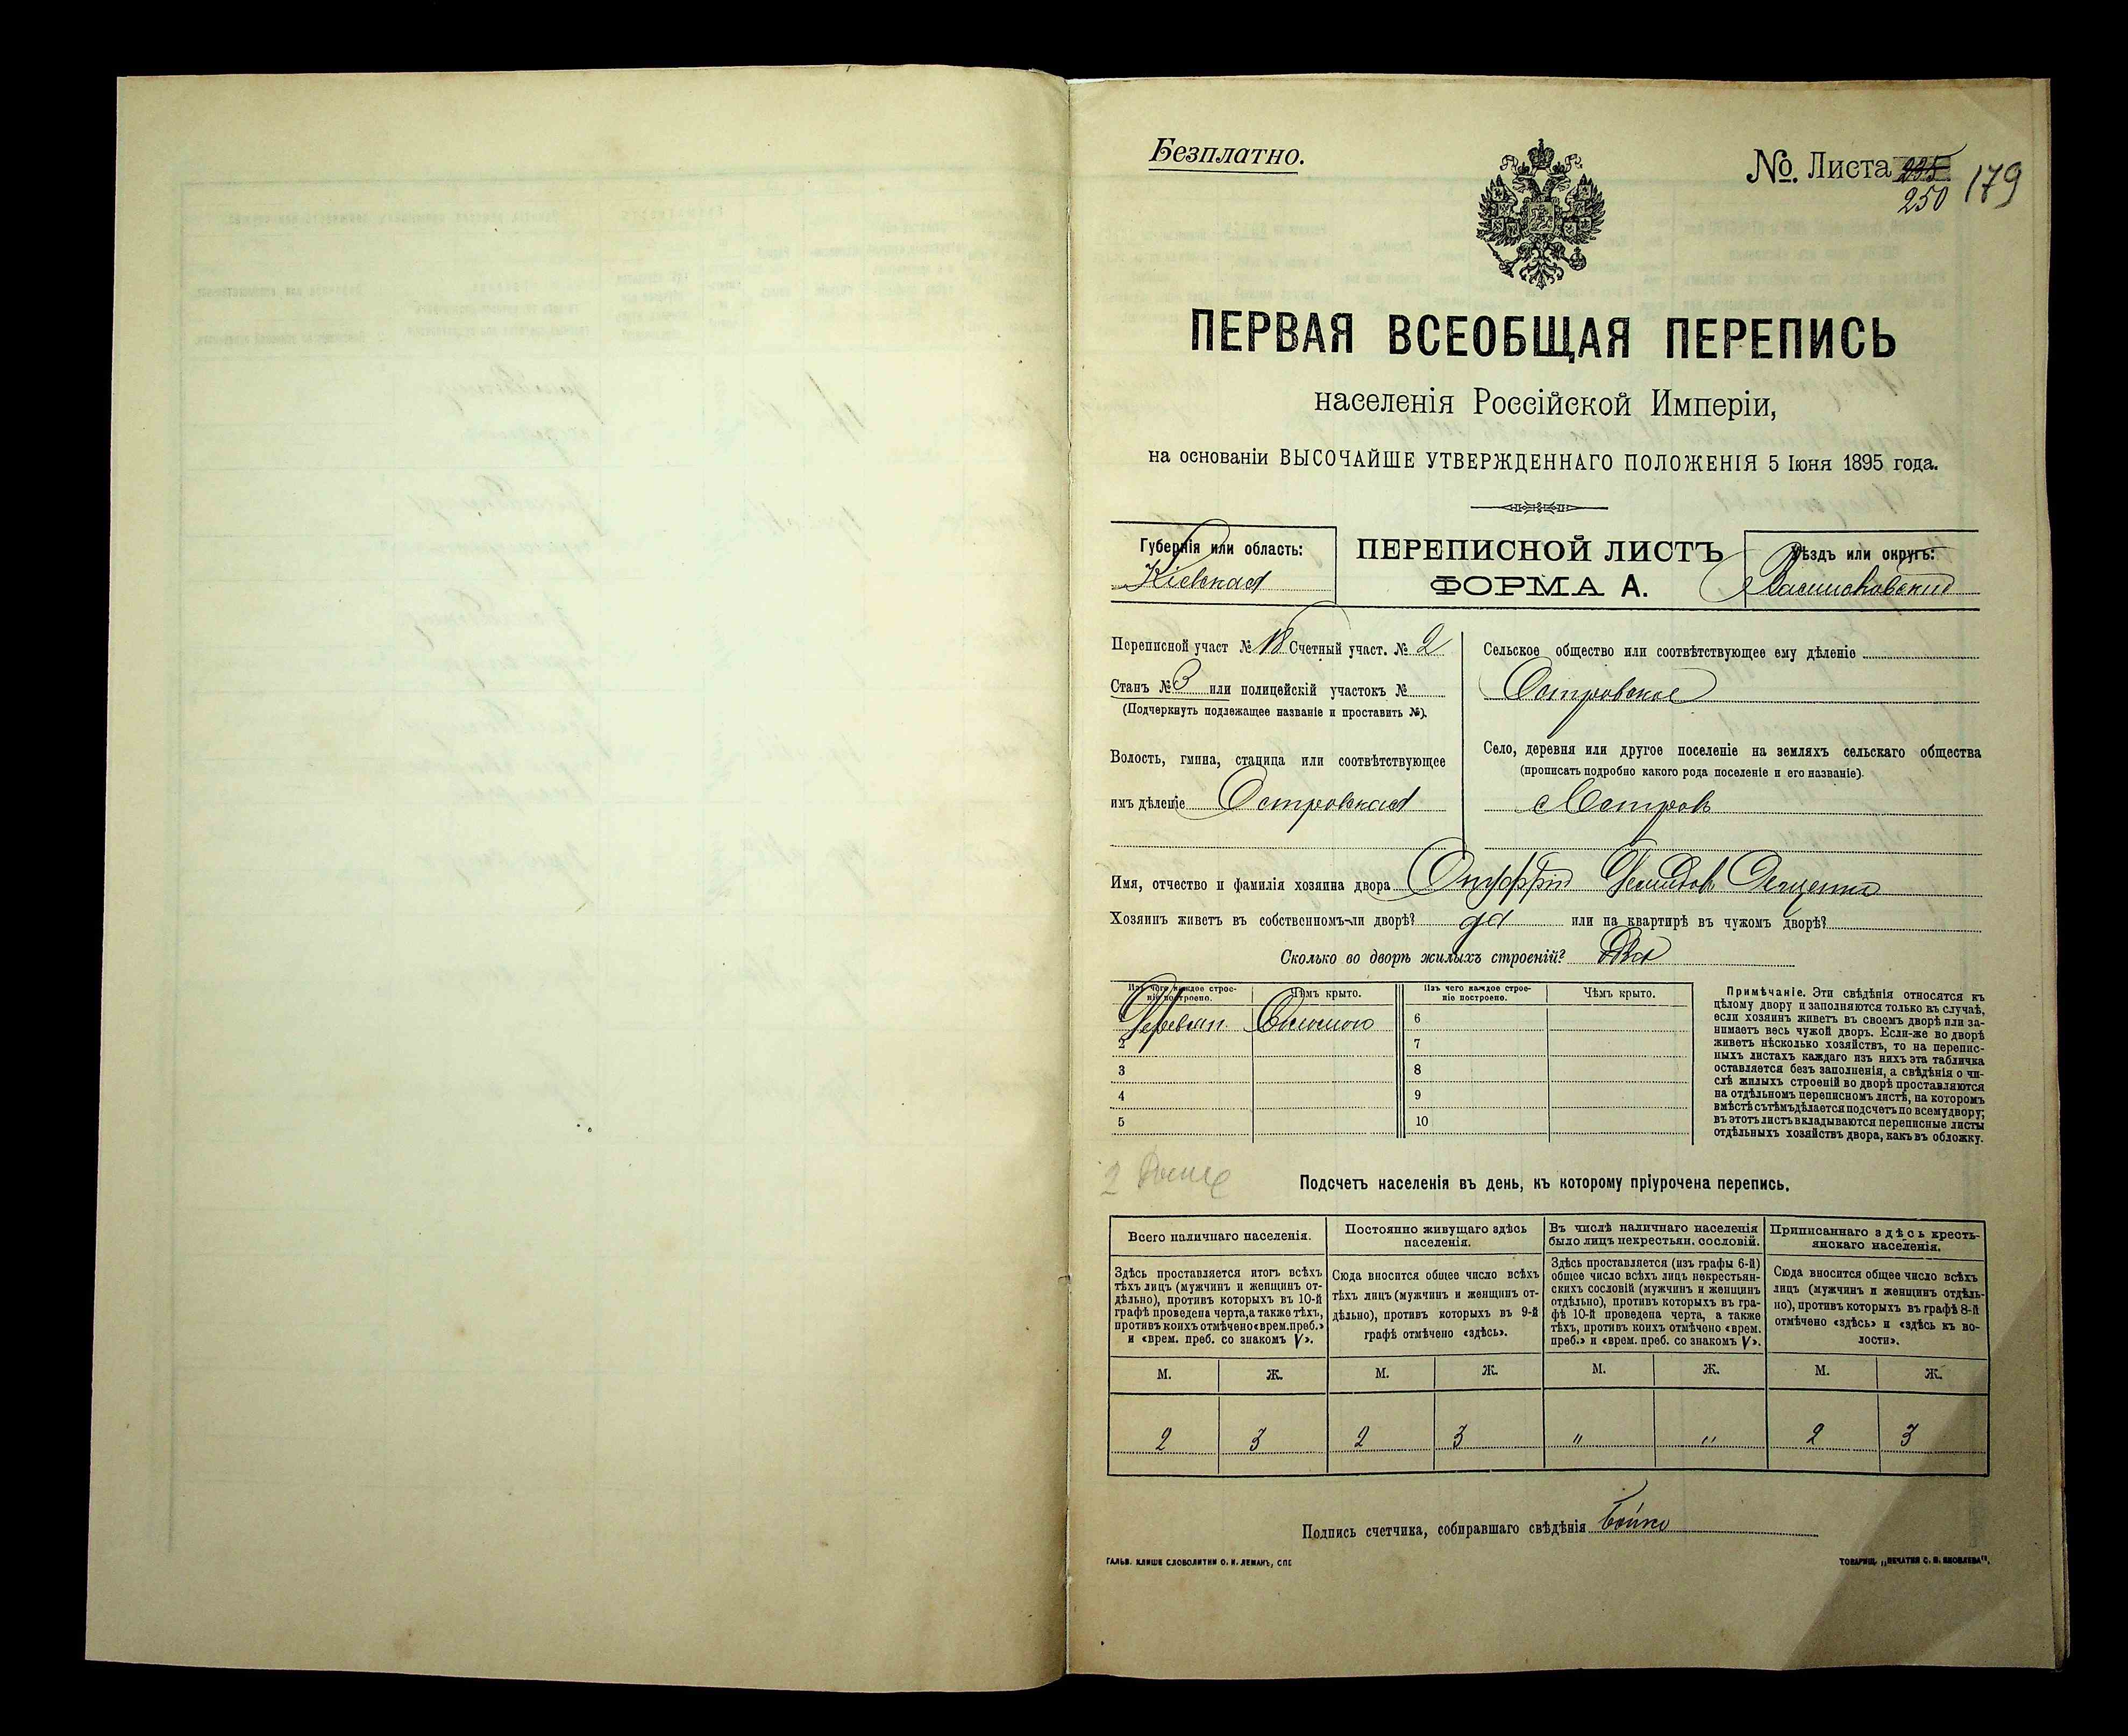 Безплатно.
№. Листа 235
250 179
ПЕРВАЯ ВСЕОБЩАЯ ПЕРЕПИСЬ
населенія Россійской Имперіи,
на основаніи ВЫСОЧАЙШЕ УТВЕРЖДЕННАГО ПОЛОЖЕНІЯ 5 Іюня 1895 года.
Губернія или область:
Кіевская
ПЕРЕПИСНОЙ ЛИСТЪ
ФОРМА А.
Уѣздъ или округъ:
Васильковскій
Переписной участ № 18 Счетный участ. № 2
Станъ № 3 или полицейскій участокъ №
(Подчеркнуть подлежащее названіе и проставить №).
Волость, гмина, станица или соотвѣтствующее
имъ дѣленіе Островская
Сельское общество или соотвѣтствующее ему дѣленіе
Островское
Село, деревня или другое поселеніе на земляхъ сельскаго общества
(прописать подробно какого рода поселеніе и его названіе).
с Островъ
Имя, отчество и фамилія хозяина двора Онуффрій Демидовъ
Хозяинъ живетъ въ собственномъ-ли дворѣ? да или на квартирѣ въ чужомъ дворѣ?
Сколько во дворѣ жилыхъ строеній? Два
Изъ чего каждое строе-
ніе построено.
Чѣмъ крыто.
Изъ чего каждое строе-
ніе построено.
Чѣмъ крыто.
Деревян. Соломою 6
2 7
3 8
4 9
5 10
Примѣчаніе. Эти свѣдѣнія относятся къ
цѣлому двору и заполняются только въ случаѣ,
если хозяинъ живетъ въ своемъ дворѣ или за-
нимаетъ весь чужой дворъ. Если-же во дворѣ
живетъ нѣсколько хозяйствъ, то на перепис-
ныхъ листахъ каждаго изъ нихъ эта табличка
оставляется безъ заполненія, а свѣдѣнія о чи-
слѣ жилыхъ строеній во дворѣ проставляются
на отдѣльномъ переписномъ листѣ, на которомъ
вмѣстѣ съ тѣмъ дѣлается подсчетъ по всему двору;
въ этотъ листъ вкладываются переписные листы
отдѣльныхъ хозяйствъ двора, какъ въ обложку.
2
Подсчетъ населенія въ день, къ которому пріурочена перепись.
Всего наличнаго населенія.
Постоянно живущаго здѣсь
населенія.
Въ числѣ наличнаго населенія
было лицъ некрестьян. сословій.
Приписаннаго здѣсь кресть-
янскаго населенія.
Здѣсь проставляется итогъ всѣхъ
тѣхъ лицъ (мужчинъ и женщинъ от-
дѣльно), противъ которыхъ въ 10-й
графѣ проведена черта, а также тѣхъ,
противъ коихъ отмѣчено «врем. преб.»
и «врем. преб. со знакомъ V».
Сюда вносится общее число всѣхъ
тѣхъ лицъ (мужчинъ и женщинъ от-
дѣльно), противъ которыхъ въ 9-й
графѣ отмѣчено «здѣсь».
Здѣсь проставляется (изъ графы 6-й)
общее число всѣхъ лицъ некрестьян-
скихъ сословій (мужчинъ и женщинъ
отдѣльно), противъ которыхъ въ гра-
фѣ 10-й проведена черта, а также
тѣхъ, противъ коихъ отмѣчено «врем.
преб.» и «врем. преб. со знакомъ V».
Сюда вносится общее число всѣхъ
лицъ (мужчинъ и женщинъ отдѣль-
но), противъ которыхъ въ графѣ 8-й
отмѣчено «здѣсь» и «здѣсь къ во-
лости».
М. Ж. М. Ж. М. Ж. М. Ж.
2 3 2 3 " " 2 3
Подпись счетчика, собиравшаго свѣдѣнія Бойко
ГАЛЬВ. КЛИШЕ СЛОВОЛИТНИ О. И. ЛЕМАНЪ, СПБ
ТОВАРИЩ. „ПЕЧАТНЯ С. П. ЯКОВЛЕВА".